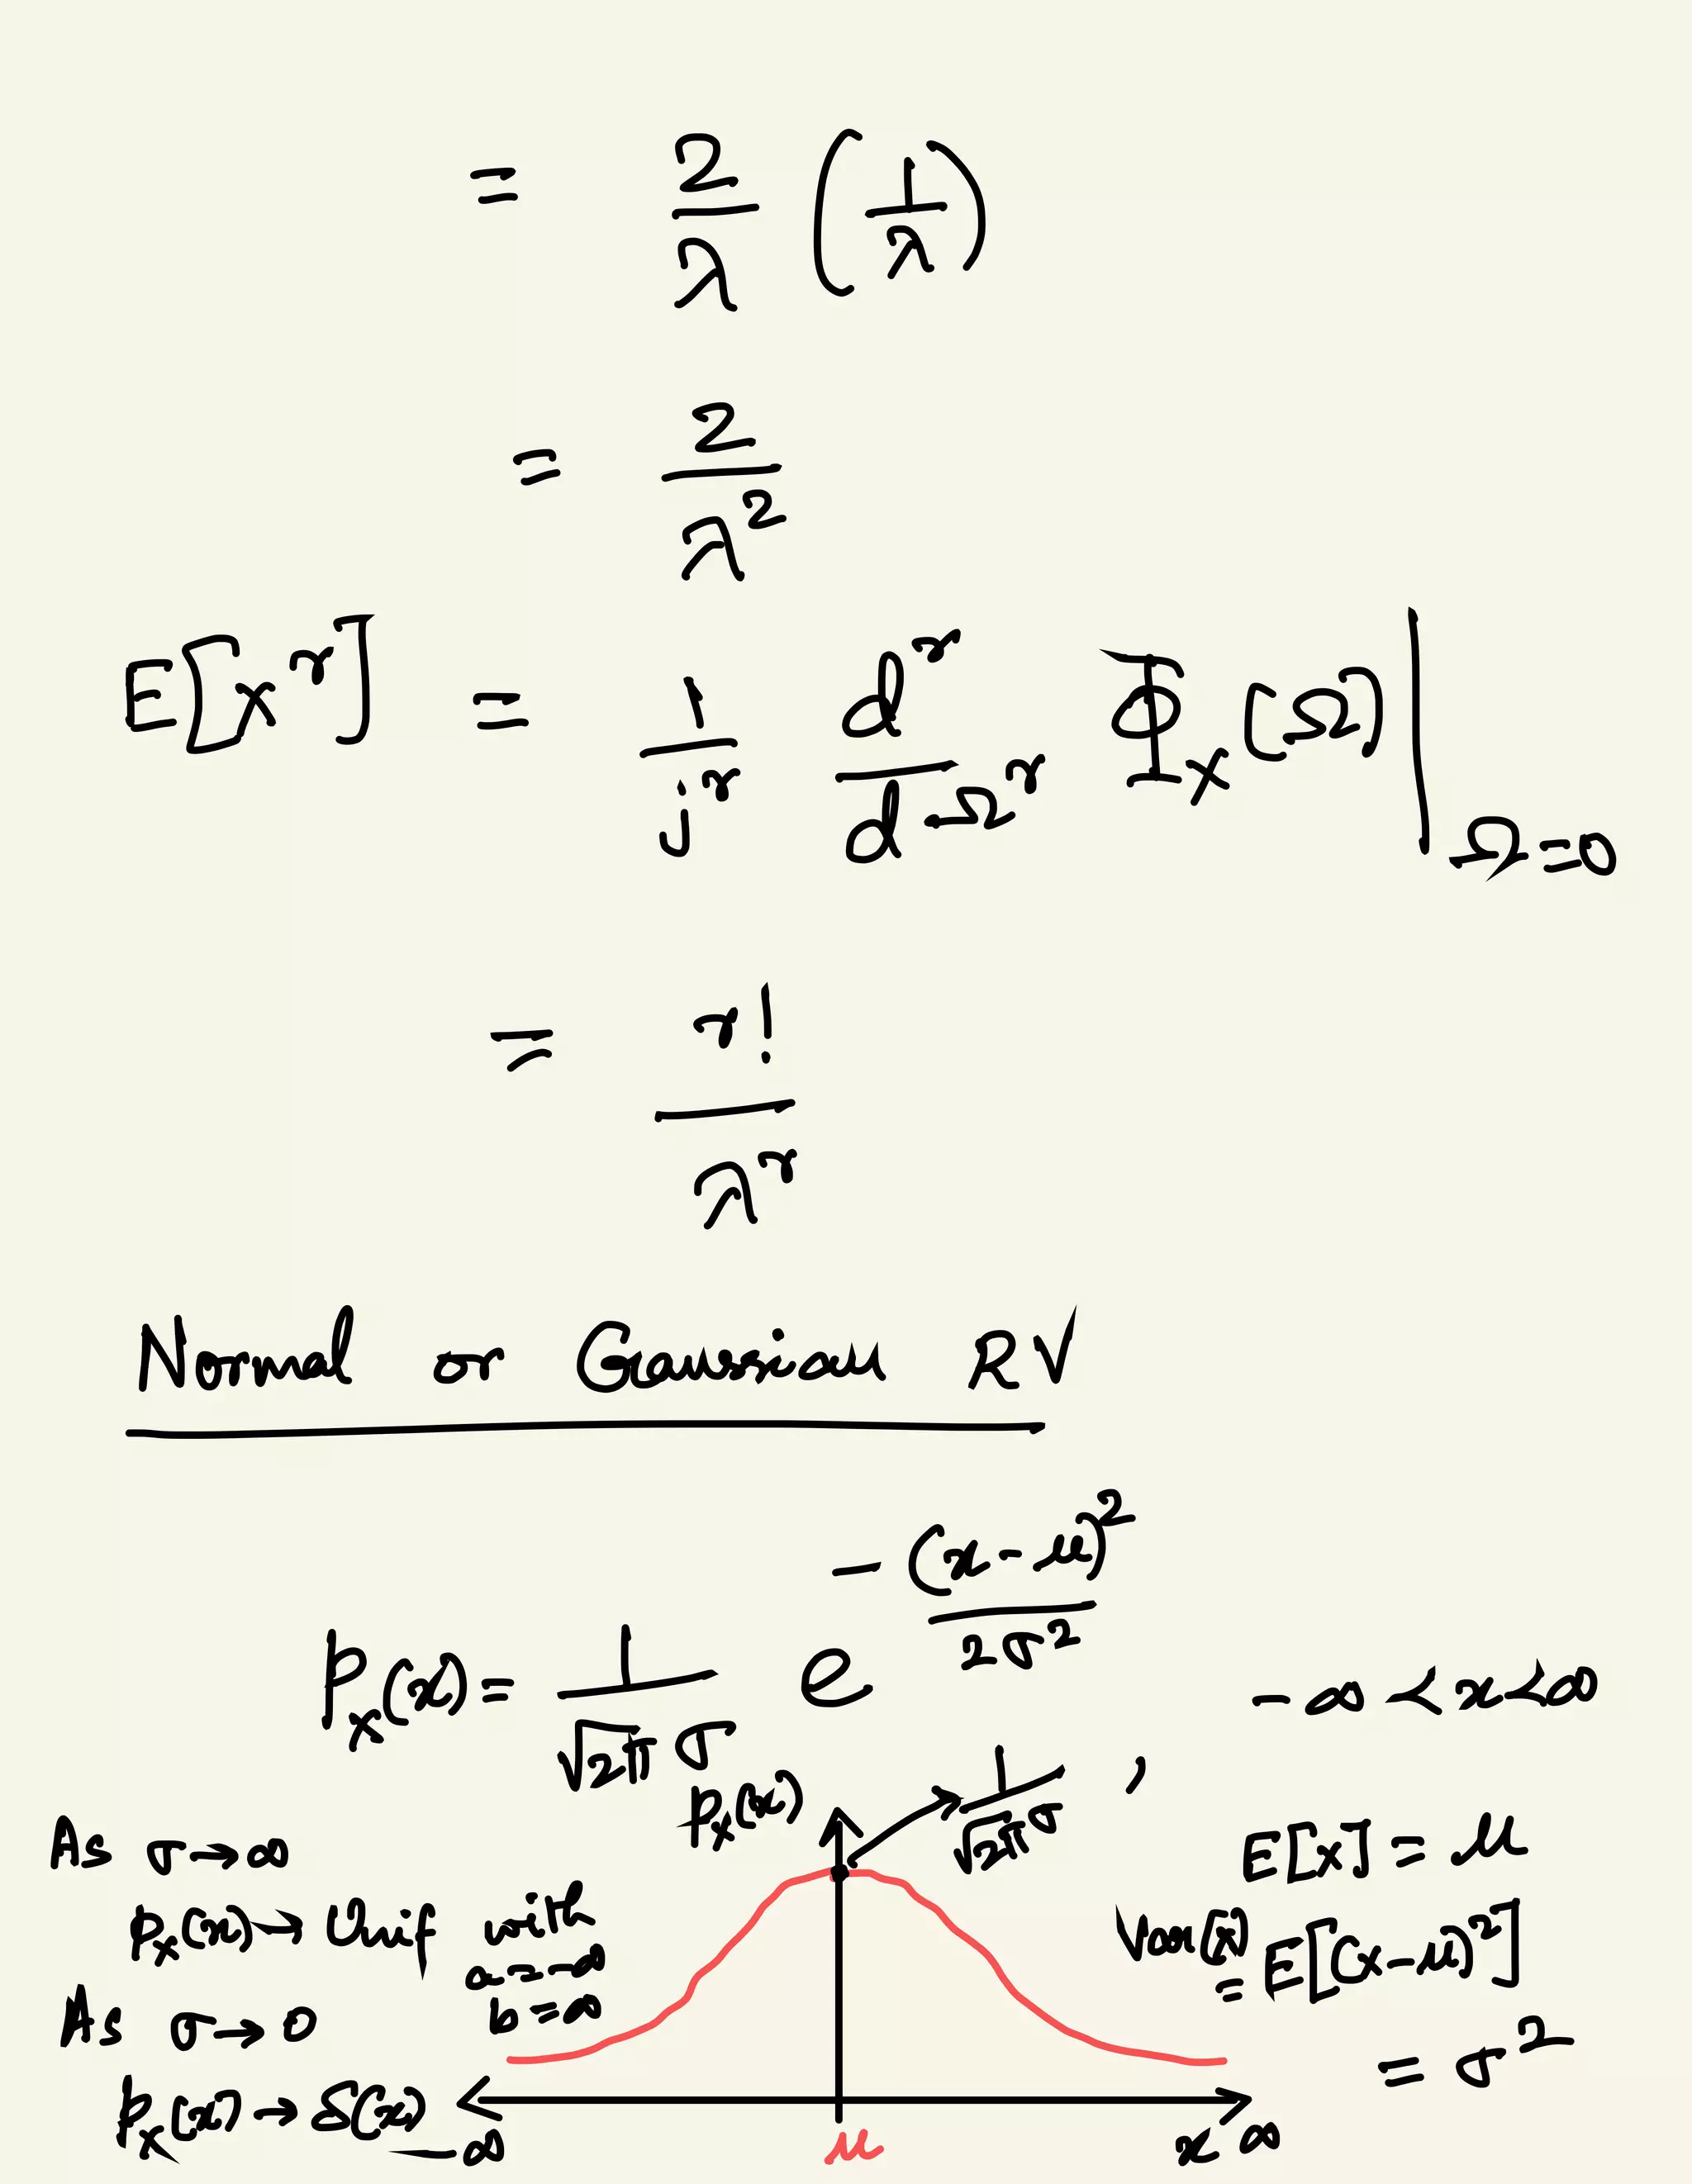 = 2/λ (1/λ)
= 2/λ²
E[X^r] = 1/j^r d^r/dΩ^r Φ_X(Ω)|_Ω=0
= r!/λ^r
Normal or Gaussian RV
p_X(x) = 1/(√2π σ) e^(-(x-μ)²/2σ²) , -∞ < x < ∞
p_X(x)
1/(√2π σ)
As σ → ∞
p_X(x) → Unif with
a = -∞
b = ∞
As σ → 0
p_X(x) → δ(x)
E[X] = μ
Var(X) = E[(X-μ)²]
= σ²
-∞
μ
x ∞